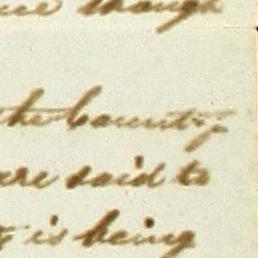 though
the County
are said to
is being